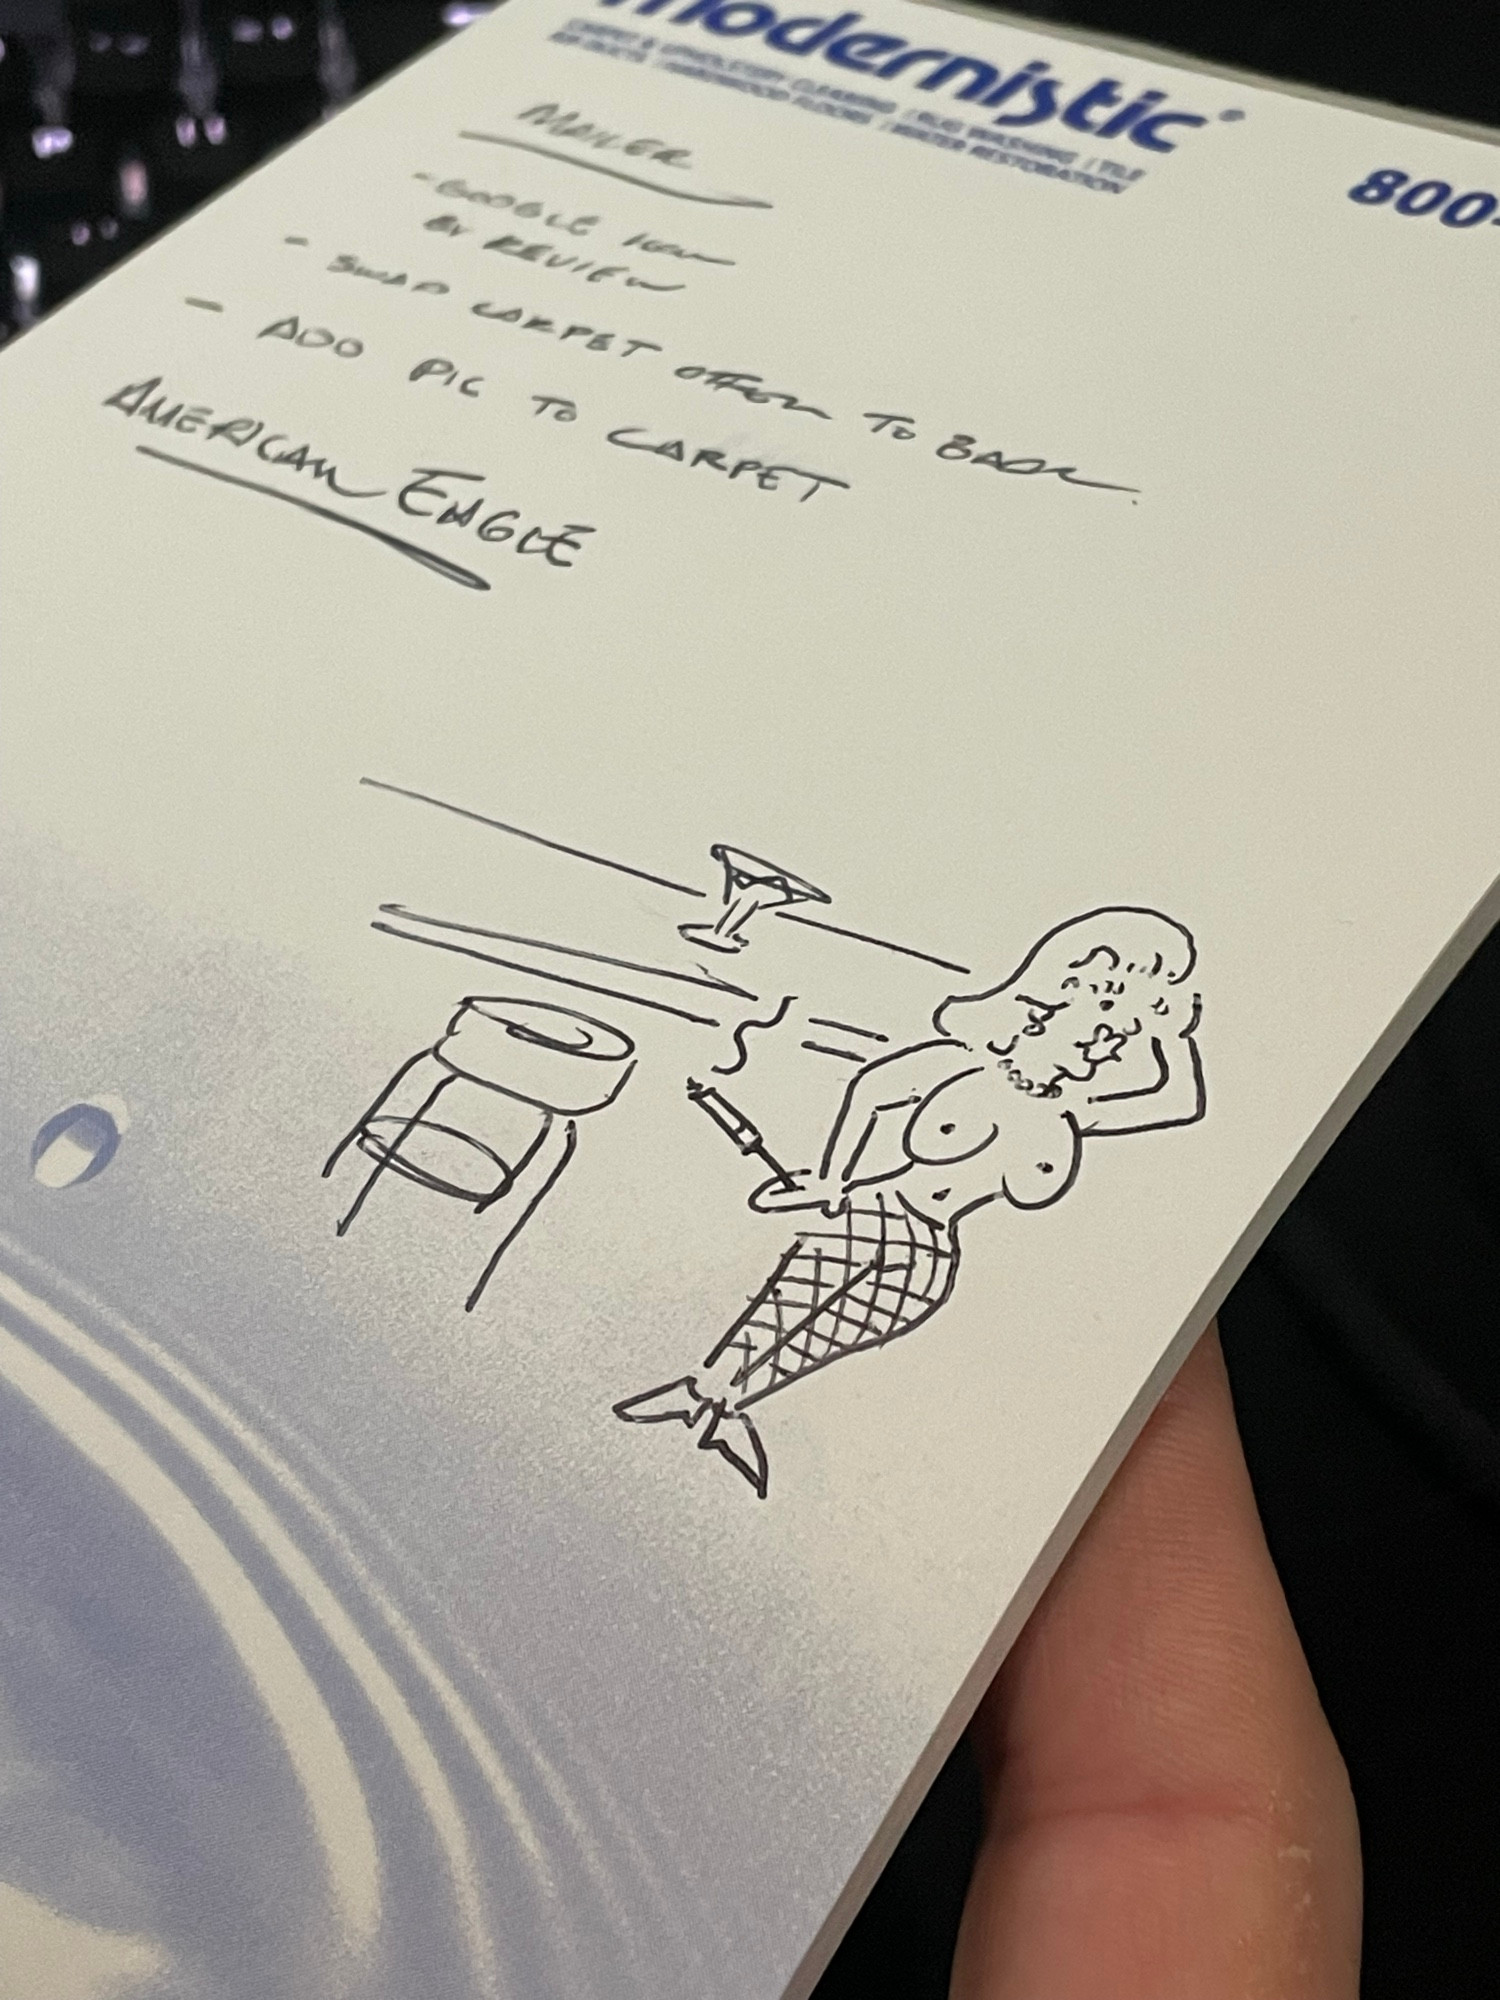 modernistic®
CARPET & UPHOLSTERY CLEANING | RUG WASHING | TILE
AIR DUCTS | HARDWOOD FLOORS | WATER RESTORATION
800-
MAILER
- GOOGLE ICON
BY REVIEW
- SWAP CARPET OFFER TO BACK.
- ADD PIC TO CARPET
AMERICAN EAGLE